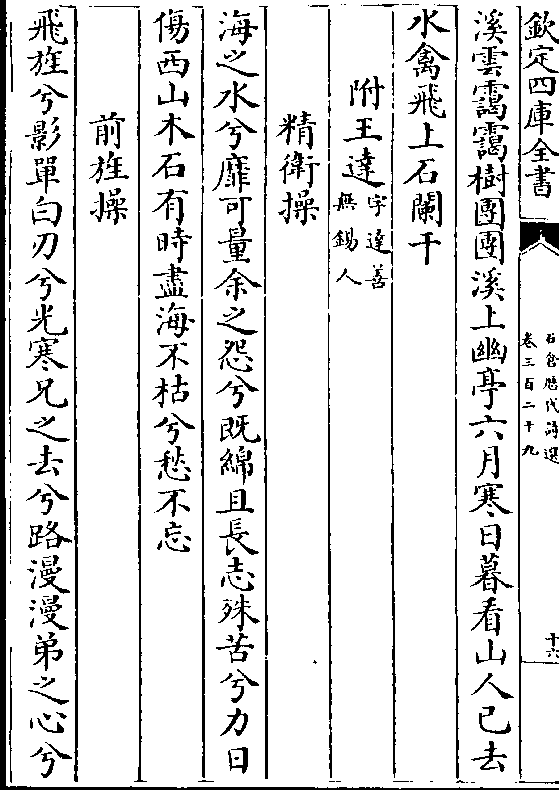 欽定四庫全書
石倉歴代詩選
卷三百二十九
十六
溪雲靄靄樹團團溪上幽亭六月寒日暮看山人已去
水禽飛上石闌干
附王達字達善
無錫人
精衛操
海之水兮靡可量余之怨兮既綿且長志殊苦兮力日
傷西山木石有時盡海不枯兮愁不忘
前旌操
飛旌兮影單白刃兮光寒兄之去兮路漫漫弟之心兮